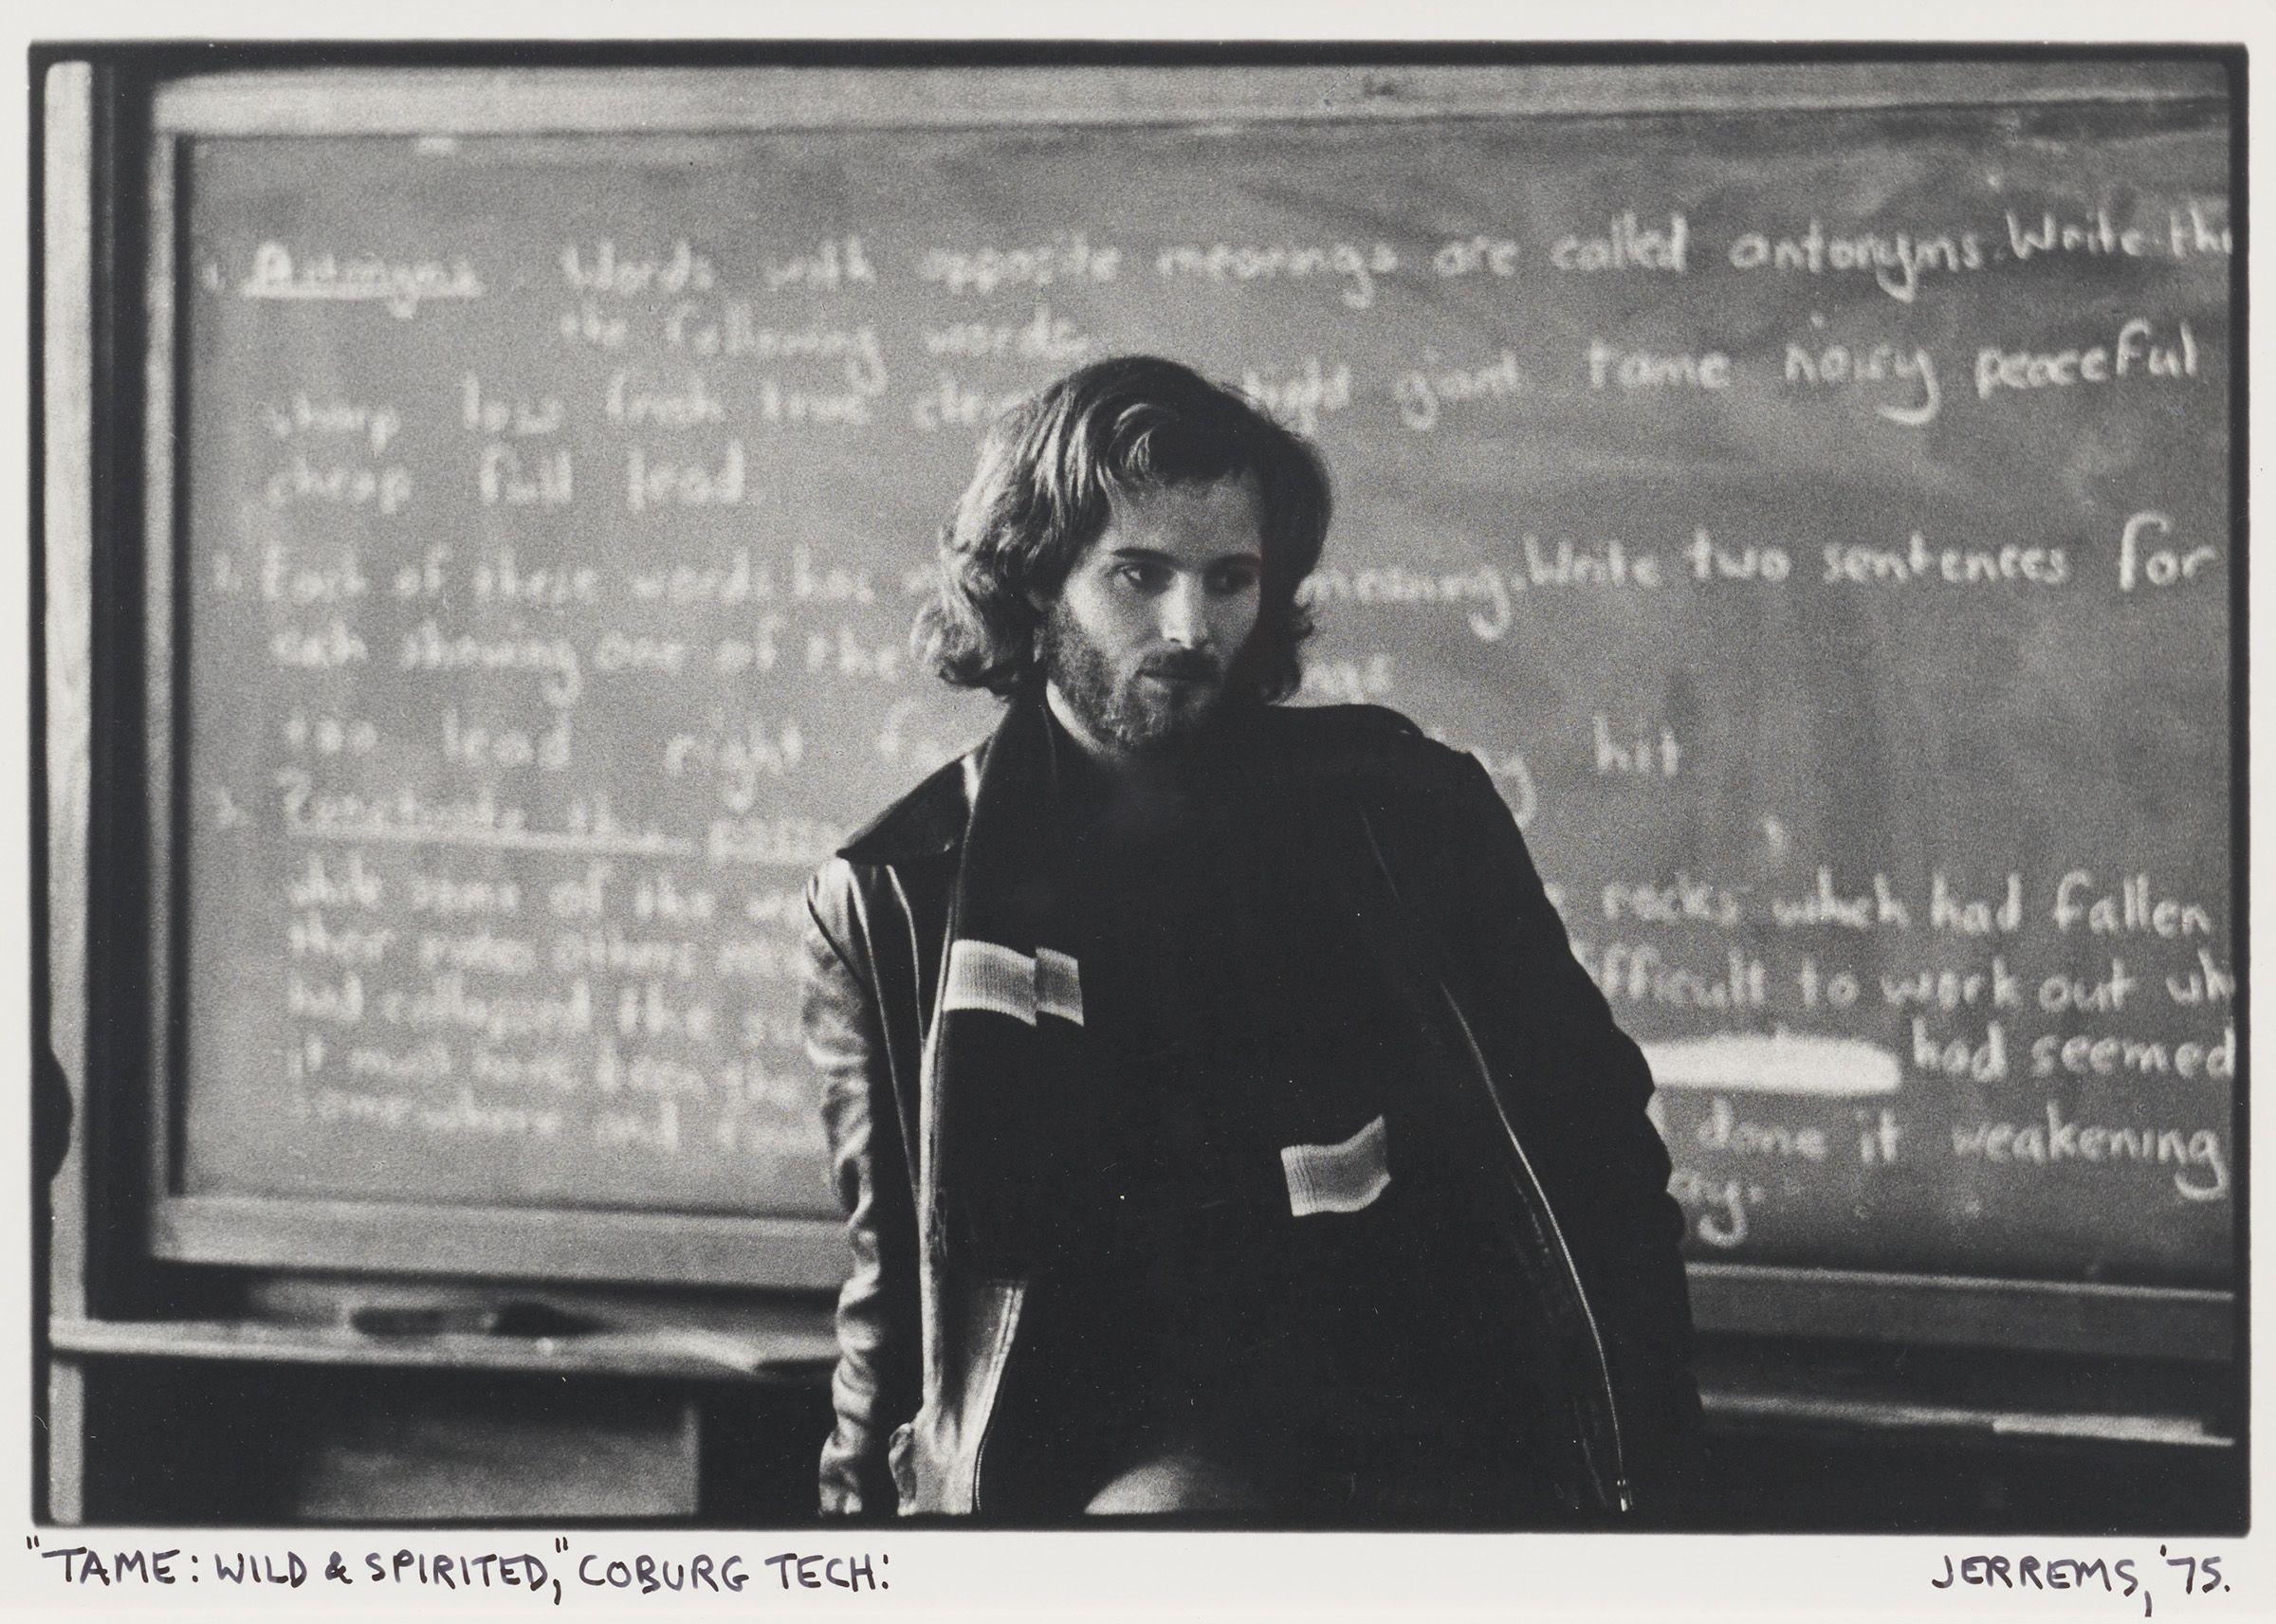 1. Antonyms Words with opposite meanings are called antonyms. Write the
the following words
sharp low fresh true tight giant tame noisy peaceful
cheap full lead
2. Each of these words has meaning. Write two sentences for
each showing one of the
lead right hit
3. Punctuate this
while some of the rocks which had fallen
their others difficult to work out
had collapsed the had seemed
it must have been the done it weakening
somewhere and
"TAME: WILD & SPIRITED," COBURG TECH.'
JERREMS, '75.